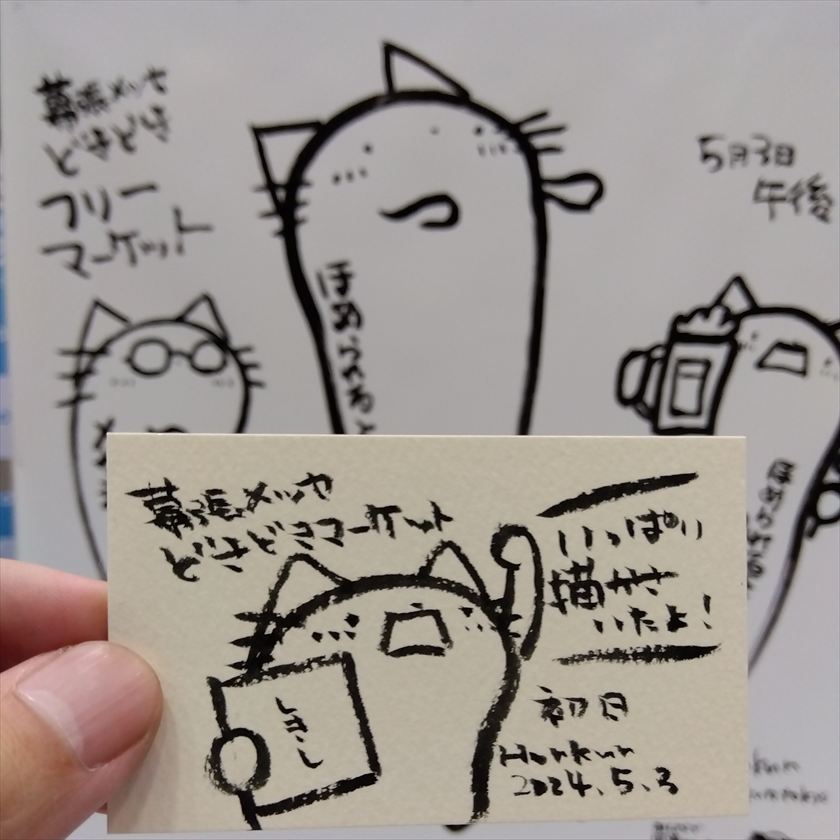 幕張メッセ
どきどき
フリー
マーケット
5月3日
午後
ほめられると
ほめられると
幕張メッセ
どきどきマーケット
いっぱい
描かさ
いたよ!
しきし
初日
2024.5.3